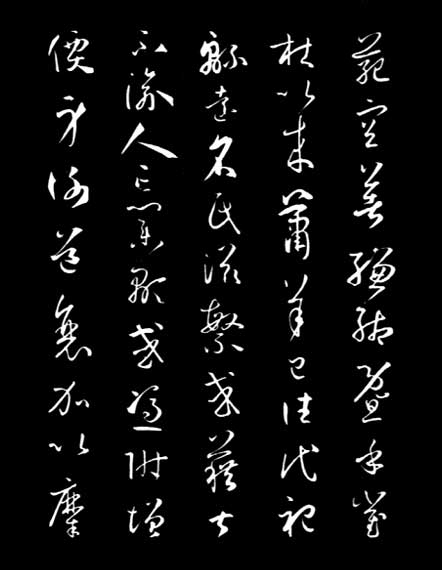 範空著縑緗暨乎崔
杜以來蕭羊已往代祀
緜遠名氏滋繁或藉甚
不渝人亡業顯或憑附增
價身謝道衰加以糜